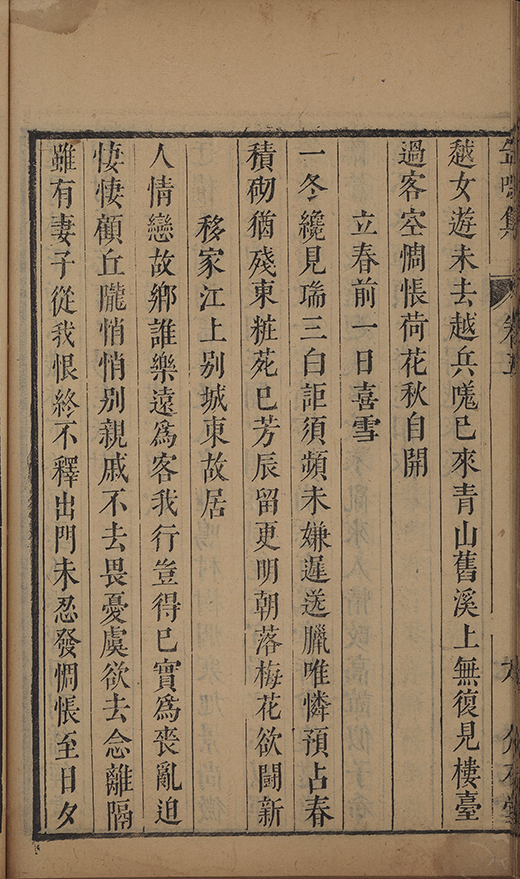 越女遊未去越兵嗟已來青山舊溪上無復見樓臺
過客空惆悵荷花秋自開
立春前一日喜雪
一冬纔見瑞三白詎須頻未嫌遲送臘唯憐預占春
積砌猶殘東粧苑已芳辰留更明朝落梅花欲闘新
移家江上别城東故居
人情戀故鄉誰樂遠爲客我行豈得已實爲喪亂迫
悽悽顧丘隴悄悄别親戚不去畏憂虞欲去念離隔
雖有妻子從我恨終不釋出門未忍發惆悵至日夕